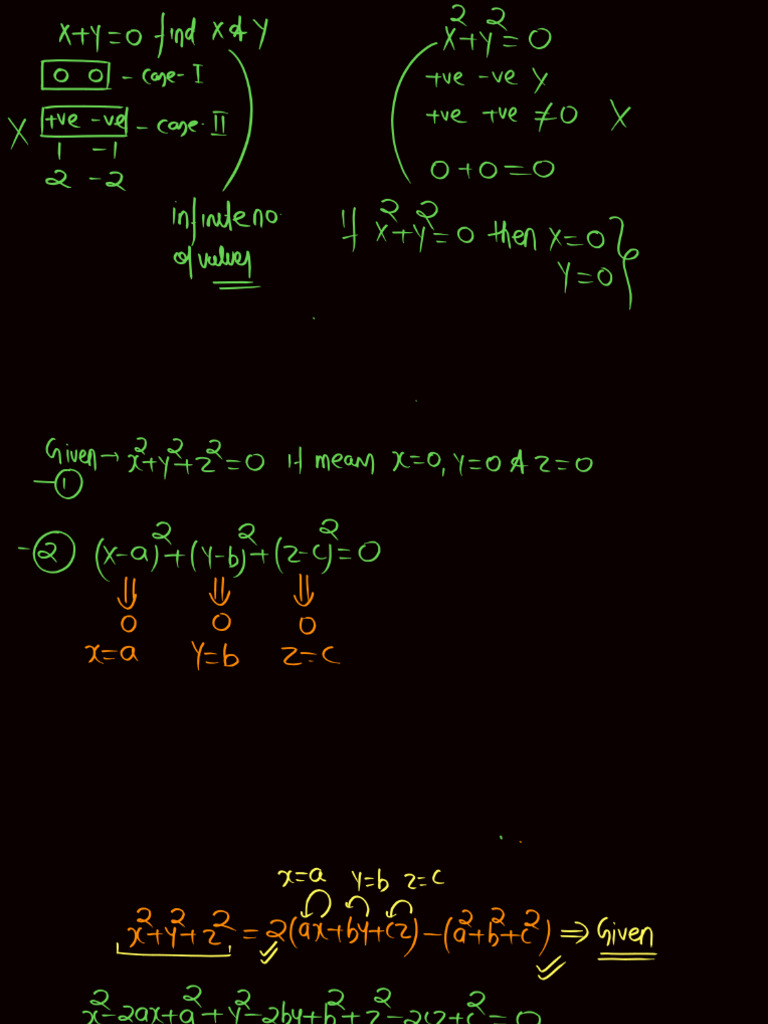 x+y=0 find x & y
0 0 - case-I
X +ve -ve - case-II
1 -1
2 -2
infinite no.
of values
x²+y²=0
+ve -ve X
+ve +ve ≠0 X
0+0=0
If x²+y²=0 then x=0
y=0
Given → x²+y²+z²=0 it means x=0, y=0 & z=0
-①
-② (x-a)²+(y-b)²+(z-c)²=0
⇓ ⇓ ⇓
0 0 0
x=a y=b z=c
x=a y=b z=c
x²+y²+z² = 2(ax+by+cz)-(a²+b²+c²) ⇒ Given
x²-2ax+a²+y²-2by+b²+z²-2cz+c²=0